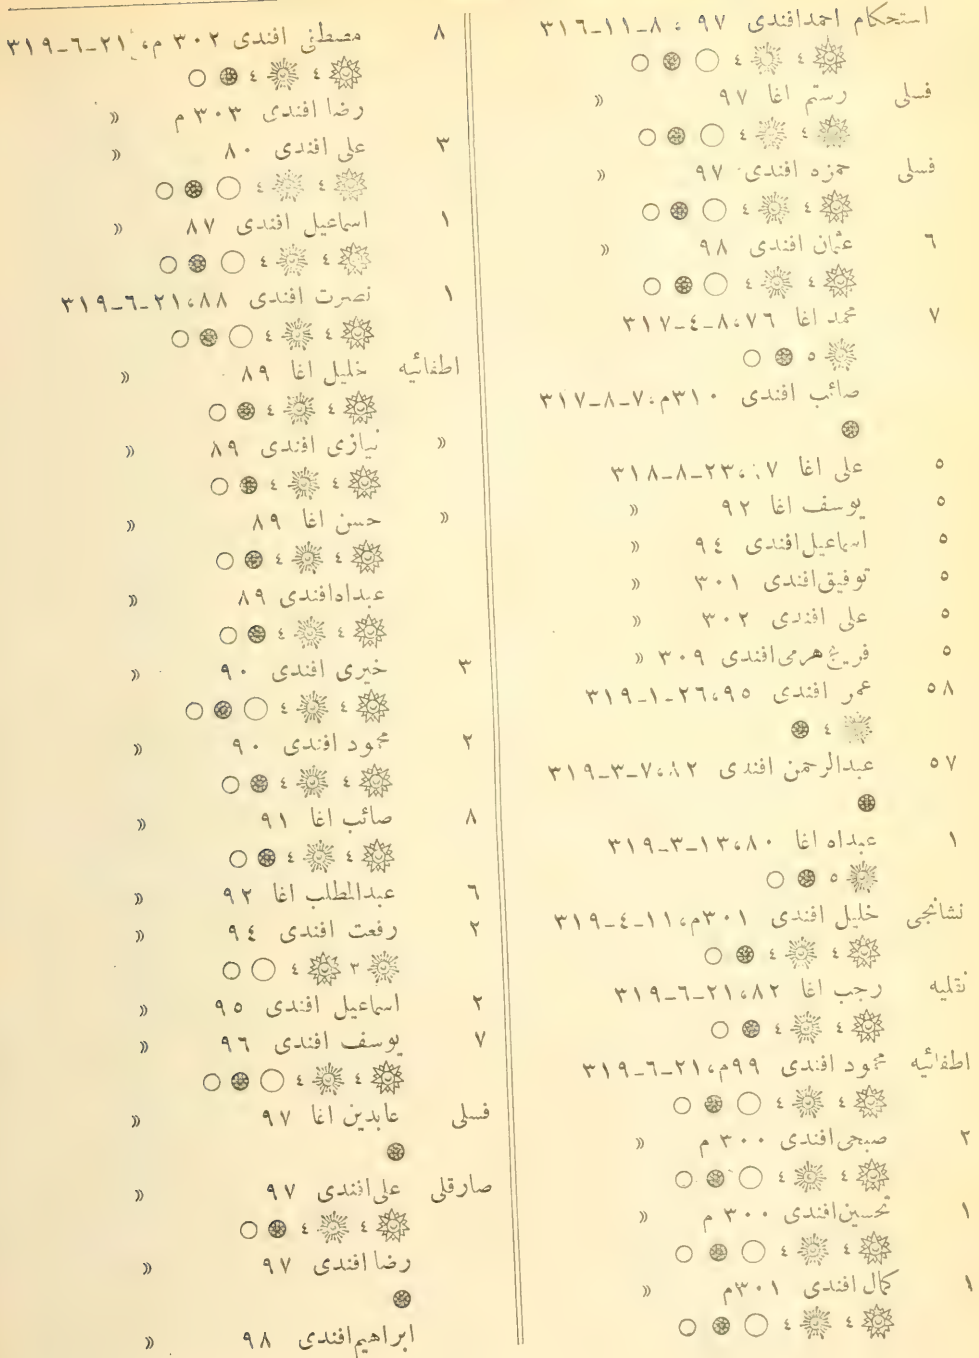 استحکام احمدافندی ٩٧ ، ٨-١١-٣١٦
٤ ٤
فسلی رستم اغا ٩٧ »
٤ ٤
فسلی حمزه افندی ٩٧ »
٤ ٤
٦ عثمان افندی ٩٨ »
٤ ٤
٧ محمد اغا ٧٦،٨-٤-٣١٧
٥
صائب افندی ٣١٠م،٧-٨-٣١٧
٥ علی اغا ٢٣-٨-٣١٨
٥ یوسف اغا ٩٢ »
٥ اسماعیل افندی ٩٤ »
٥ توفیق افندی ٣٠١ »
٥ علی افندی ٣٠٢ »
٥ هرمی افندی ٣٠٩ »
٥٨ عمر افندی ٩٥،٢٦-١-٣١٩
٤
٥٧ عبدالرحمن افندی ٨٢،٧-٣-٣١٩
١ عبداه اغا ٨٠،١٣-٣-٣١٩
٥
نشانجی خلیل افندی ٣٠١م،١١-٤-٣١٩
٤ ٤
نقلیه رجب اغا ٨٢،٢١-٦-٣١٩
٤ ٤
اطفائیه محمود افندی ٩٩م،٢١-٦-٣١٩
٤ ٤
٢ صبحی افندی ٣٠٠ م »
٤ ٤
١ تحسین افندی ٣٠٠ م »
٤ ٤
١ کمال افندی ٣٠١م »
٤ ٤
٨ مصطفی افندی ٣٠٢ م،٢١-٦-٣١٩
٤ ٤
رضا افندی ٣٠٣ م »
٣ علی افندی ٨٠ »
٤ ٤
١ اسماعیل افندی ٨٧ »
٤ ٤
١ نصرت افندی ٨٨،٢١-٦-٣١٩
٤ ٤
اطفائیه خلیل اغا ٨٩ »
٤ ٤
» نیازی افندی ٨٩ »
٤ ٤
» حسن اغا ٨٩ »
٤ ٤
عبداه‌افندی ٨٩ »
٤ ٤
٣ خیری افندی ٩٠ »
٤ ٤
٢ محمود افندی ٩٠ »
٤ ٤
٨ صائب اغا ٩١ »
٤ ٤
٦ عبدالمطلب اغا ٩٢ »
٢ رفعت افندی ٩٤ »
٣ ٤
٢ اسماعیل افندی ٩٥ »
٧ یوسف افندی ٩٦ »
٤ ٤
فسلی عابدین اغا ٩٧ »
صارقلی علی‌افندی ٩٧ »
٤ ٤
رضا افندی ٩٧ »
ابراهیم‌افندی ٩٨ »